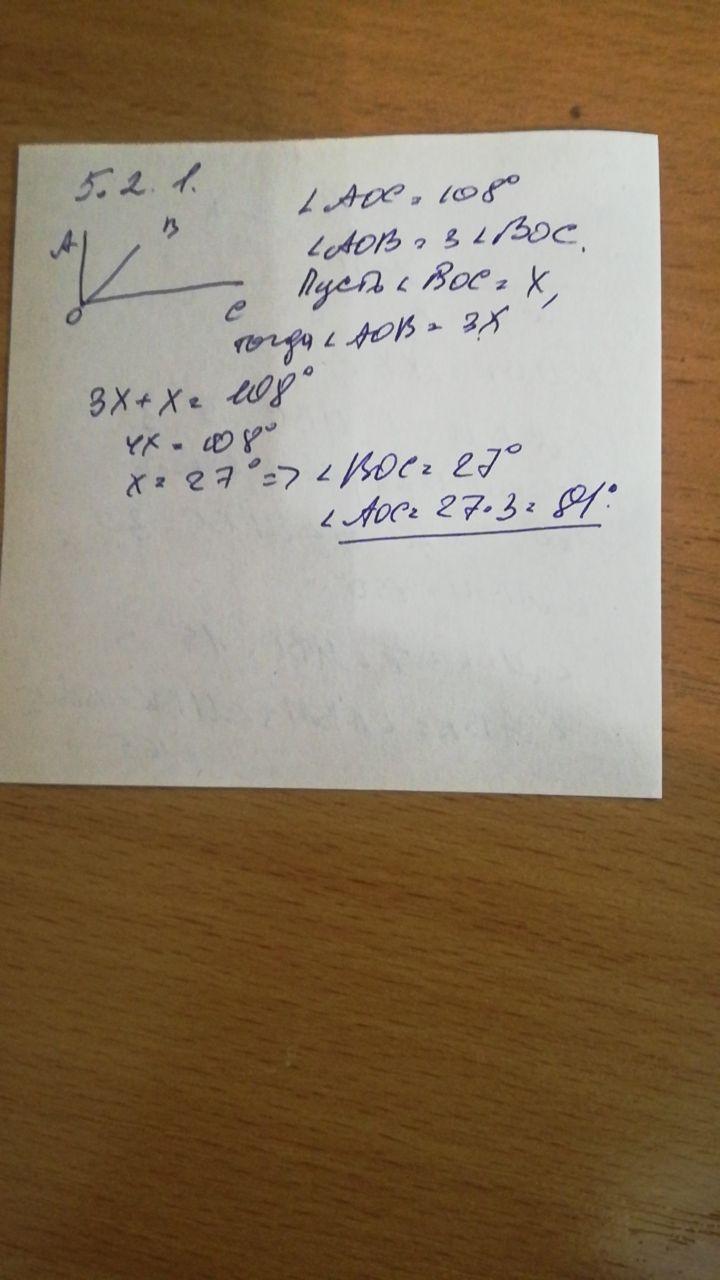 5.2.1.
A B
O C
∠AOC = 108°
∠AOB = 3∠BOC.
Пусть ∠BOC = x,
тогда ∠AOB = 3x
3x + x = 108°
4x = 108°
x = 27° => ∠BOC = 27°
∠AOC = 27·3 = 81°.